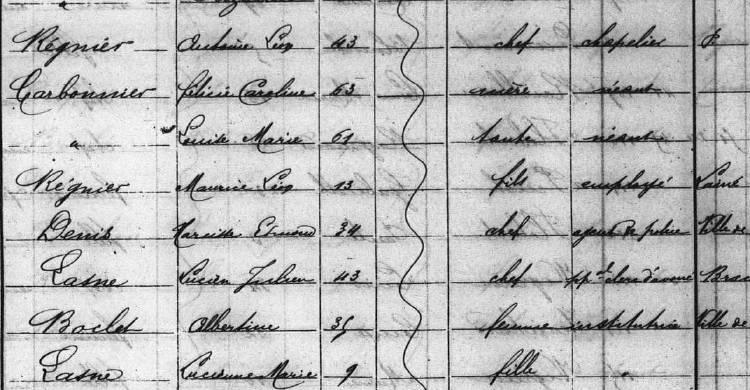 Régnier Antoine Léon 43 chef chapelier P
Carbonnier Félicie Caroline 63 mère néant
" Louise Marie 61 tante néant
Régnier Maurice Léon 13 fils employé Lainé
Denis Narcisse Edmond 34 chef agent de police Ville de
Lasne Lucien Julien 43 chef ppal clerc d'avoué
Boclet Albertine 35 femme institutrice Ville de
Lasne Lucienne Marie 9 fille "